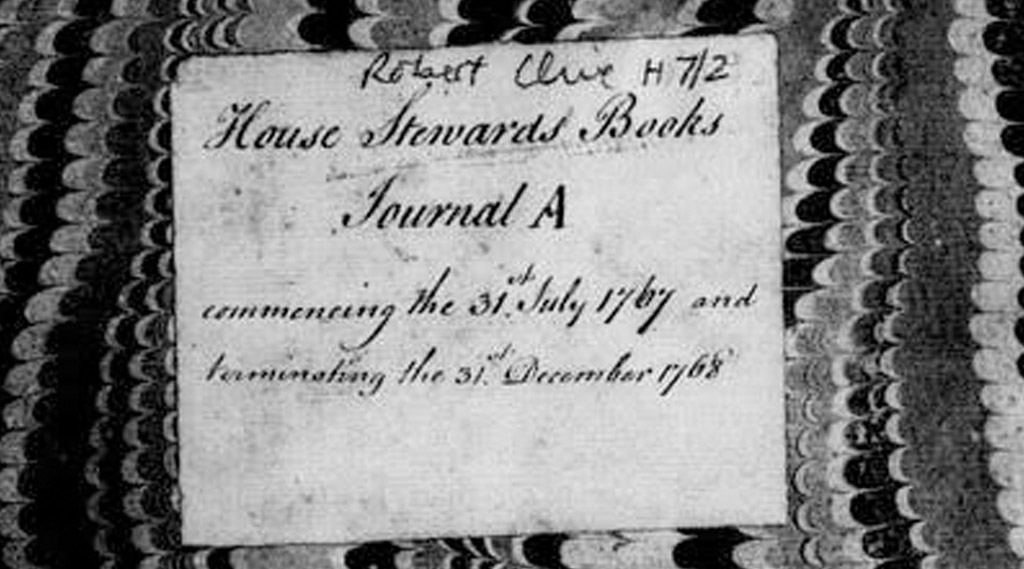 Robert Clive H 7/2
House Stewards Books
Journal A
commencing the 31.st July 1767 and
terminating the 31.st December 1768